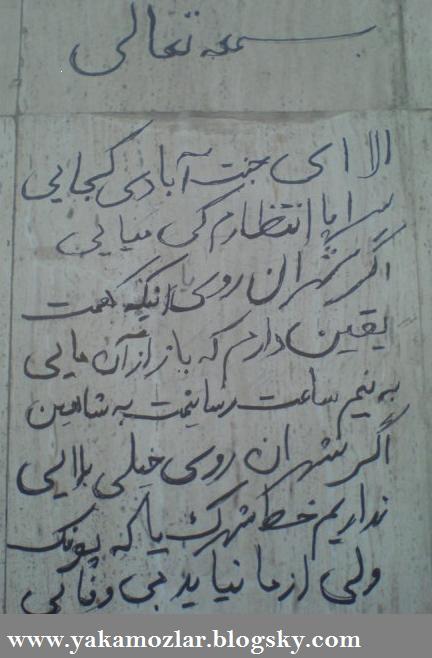 بسمه تعالی
الا ای جنت آبادی کجایی
سراپا انتظارم کی میایی
اگر تهران روی یا اینکه همت
یقین دارم که باز از آن مایی
به نیم ساعت رسانیمت به شاهین
اگر شهران روی خیلی بلایی
نداریم خط شهرک یا که پونک
ولی از ما نیاید بی وفایی
www.yakamozlar.blogsky.com